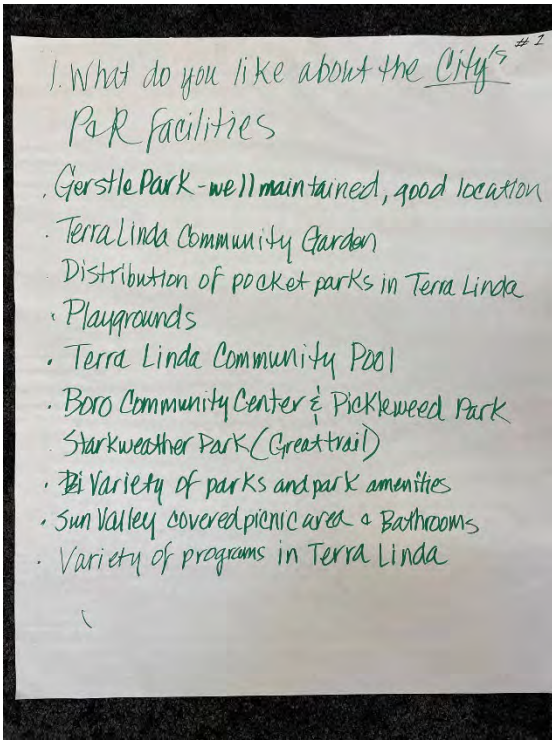 # 1
1. What do you like about the City's
P&R facilities
. Gerstle Park - well maintained, good location
. Terra Linda Community Garden
Distribution of pocket parks in Terra Linda
. Playgrounds
. Terra Linda Community Pool
. Boro Community Center & Pickleweed Park
Starkweather Park (Great trail)
. Variety of parks and park amenities
. Sun Valley covered picnic area & Bathrooms
. Variety of programs in Terra Linda